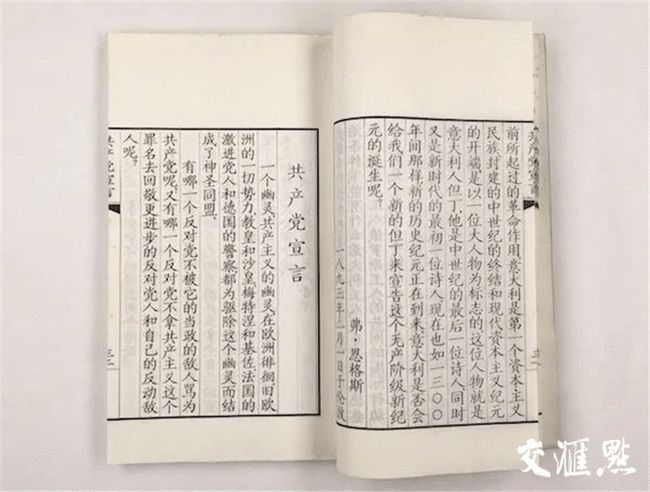 共产党宣言
前所起过的革命作用.意大利是第一个资本主义
民族.封建的中世纪的终结和现代资本主义纪元
的开端.是以一位大人物为标志的.这位人物就是
意大利人但丁.他是中世纪的最后一位诗人.同时
又是新时代的最初一位诗人.现在也如一三〇〇
年间那样.新的历史纪元正在到来.意大利是否会
给我们一个新的但丁来宣告这个无产阶级新纪
元的诞生呢?
弗·恩格斯
一八九三年二月一日于伦敦
共产党宣言
一个幽灵.共产主义的幽灵在欧洲徘徊.旧欧
洲的一切势力.教皇和沙皇.梅特涅和基佐.法国的
激进党人和德国的警察都为驱除这个幽灵而结
成了神圣同盟.
有哪一个反对党不被它的当政的敌人骂为
共产党呢.又有哪一个反对党不拿共产主义这个
罪名去回敬更进步的反对党人和自己的反动敌
人呢.
共产党宣言
交滙點